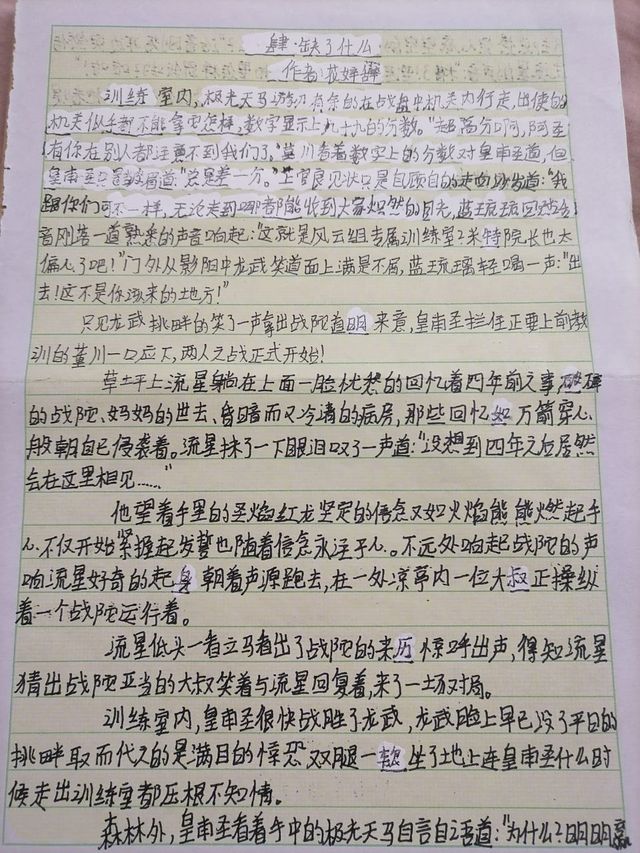 肆·缺了什么
作者
训练室内，极光天马游刃有余的在战盘中机关内行走，出使的
机关似乎都不能拿它怎样，数字显示上九十九的分数。"超高分啊，阿圣
有你在别人都注意不到我们了。"莫川看着数字上的分数对皇甫圣道，但
皇甫圣只是皱眉道："总是差一分。"上官良见状只是自顾自的走向沙发道："我
跟你们可不一样，无论走到哪都能收到大家炽热的目光，蓝琉璃
音刚落一道熟悉的声音响起："这就是风云组专属训练室？米特院长也太
偏心了吧！"门外从影阳中龙武笑道面上满是不屑，蓝琉璃轻喝一声："出
去！这不是你该来的地方！"
只见龙武挑畔的笑了一声拿出战陀道明来意，皇甫圣拦住正要上前教
训的莫川一口应下，两人之战正式开始！
草坪上流星躺在上面一脸忧愁的回忆着四年前之事，破碎
的战陀、妈妈的世去、昏暗而又冷清的病房，那些回忆如万箭穿心
般朝自己侵袭着。流星抹了一下眼泪叹了一声道："没想到四年之后居然
会在这里相见……"
他望着手里的圣焰红龙坚定的信念又如火焰熊熊燃起手
心不仅开始紧握起发誓也随着信念永注于心。不远处响起战陀的声
响流星好奇的起身朝着声源跑去，在一处凉亭内一位大叔正操纵
着一个战陀运行着。
流星低头一看立马看出了战陀的来历惊呼出声，得知流星
猜出战陀正当的大叔笑着与流星回复着，来了一场对局。
训练室内，皇甫圣很快战胜了龙武，龙武脸上早已没了平日的
挑畔取而代之的是满目的惊恐，双腿一软坐了地上连皇甫圣什么时
候走出训练室都压根不知情。
森林外，皇甫圣看着手中的极光天马自言自语道："为什么？明明赢